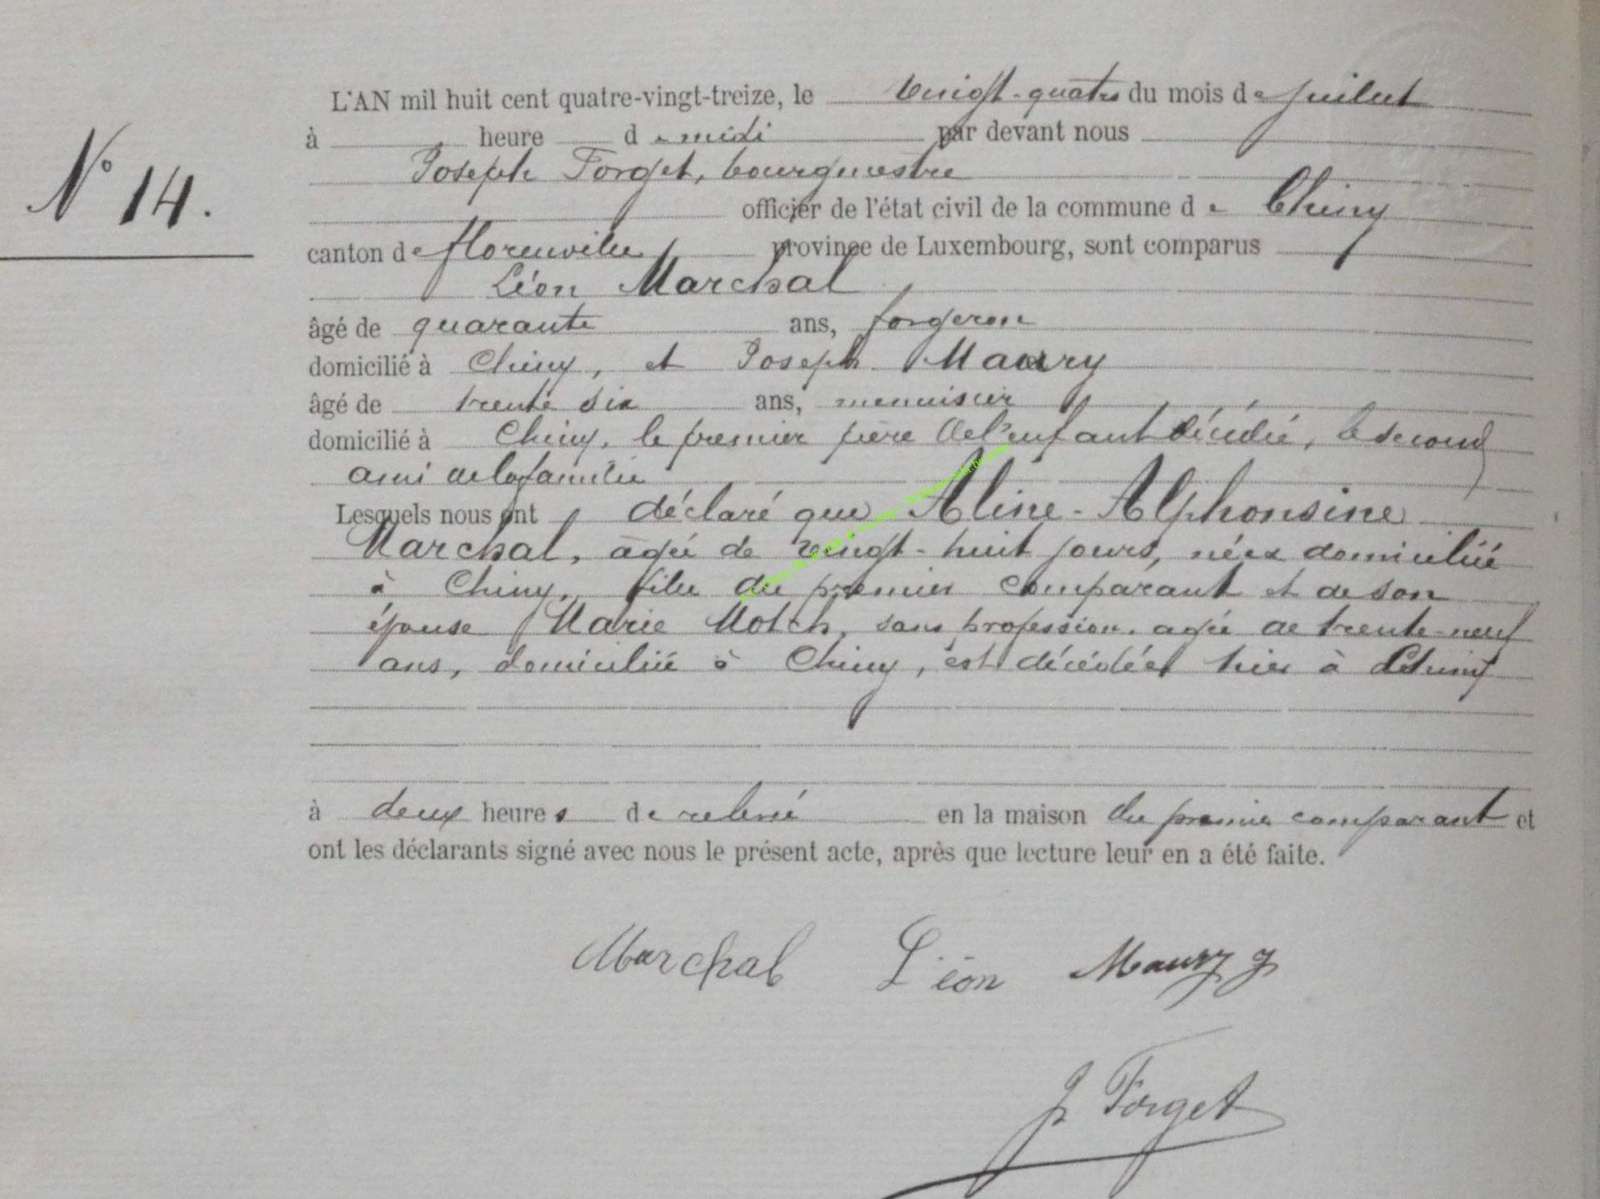 N° 14.
L'AN mil huit cent quatre-vingt-treize, le vingt-quatre du mois de juillet
à heure de midi par devant nous
Joseph Forget, bourgmestre
officier de l'état civil de la commune de Chiny
canton de Florenville province de Luxembourg, sont comparus
Léon Marchal
âgé de quarante ans, forgeron
domicilié à Chiny, et Joseph Maury
âgé de trente six ans, menuisier
domicilié à Chiny, le premier père de l'enfant décédée, le second
ami de la famille
Lesquels nous ont déclaré que Aline-Alphonsine
Marchal, agée de vingt-huit jours, née et domiciliée
à Chiny, fille du premier comparant et de son
épouse Marie Motch, sans profession, agée de trente-neuf
ans, domiciliée à Chiny, est décédée hier à Chiny
à deux heures de relevé en la maison du premier comparant et
ont les déclarants signé avec nous le présent acte, après que lecture leur en a été faite.
Marchal Léon Maury J
J Forget